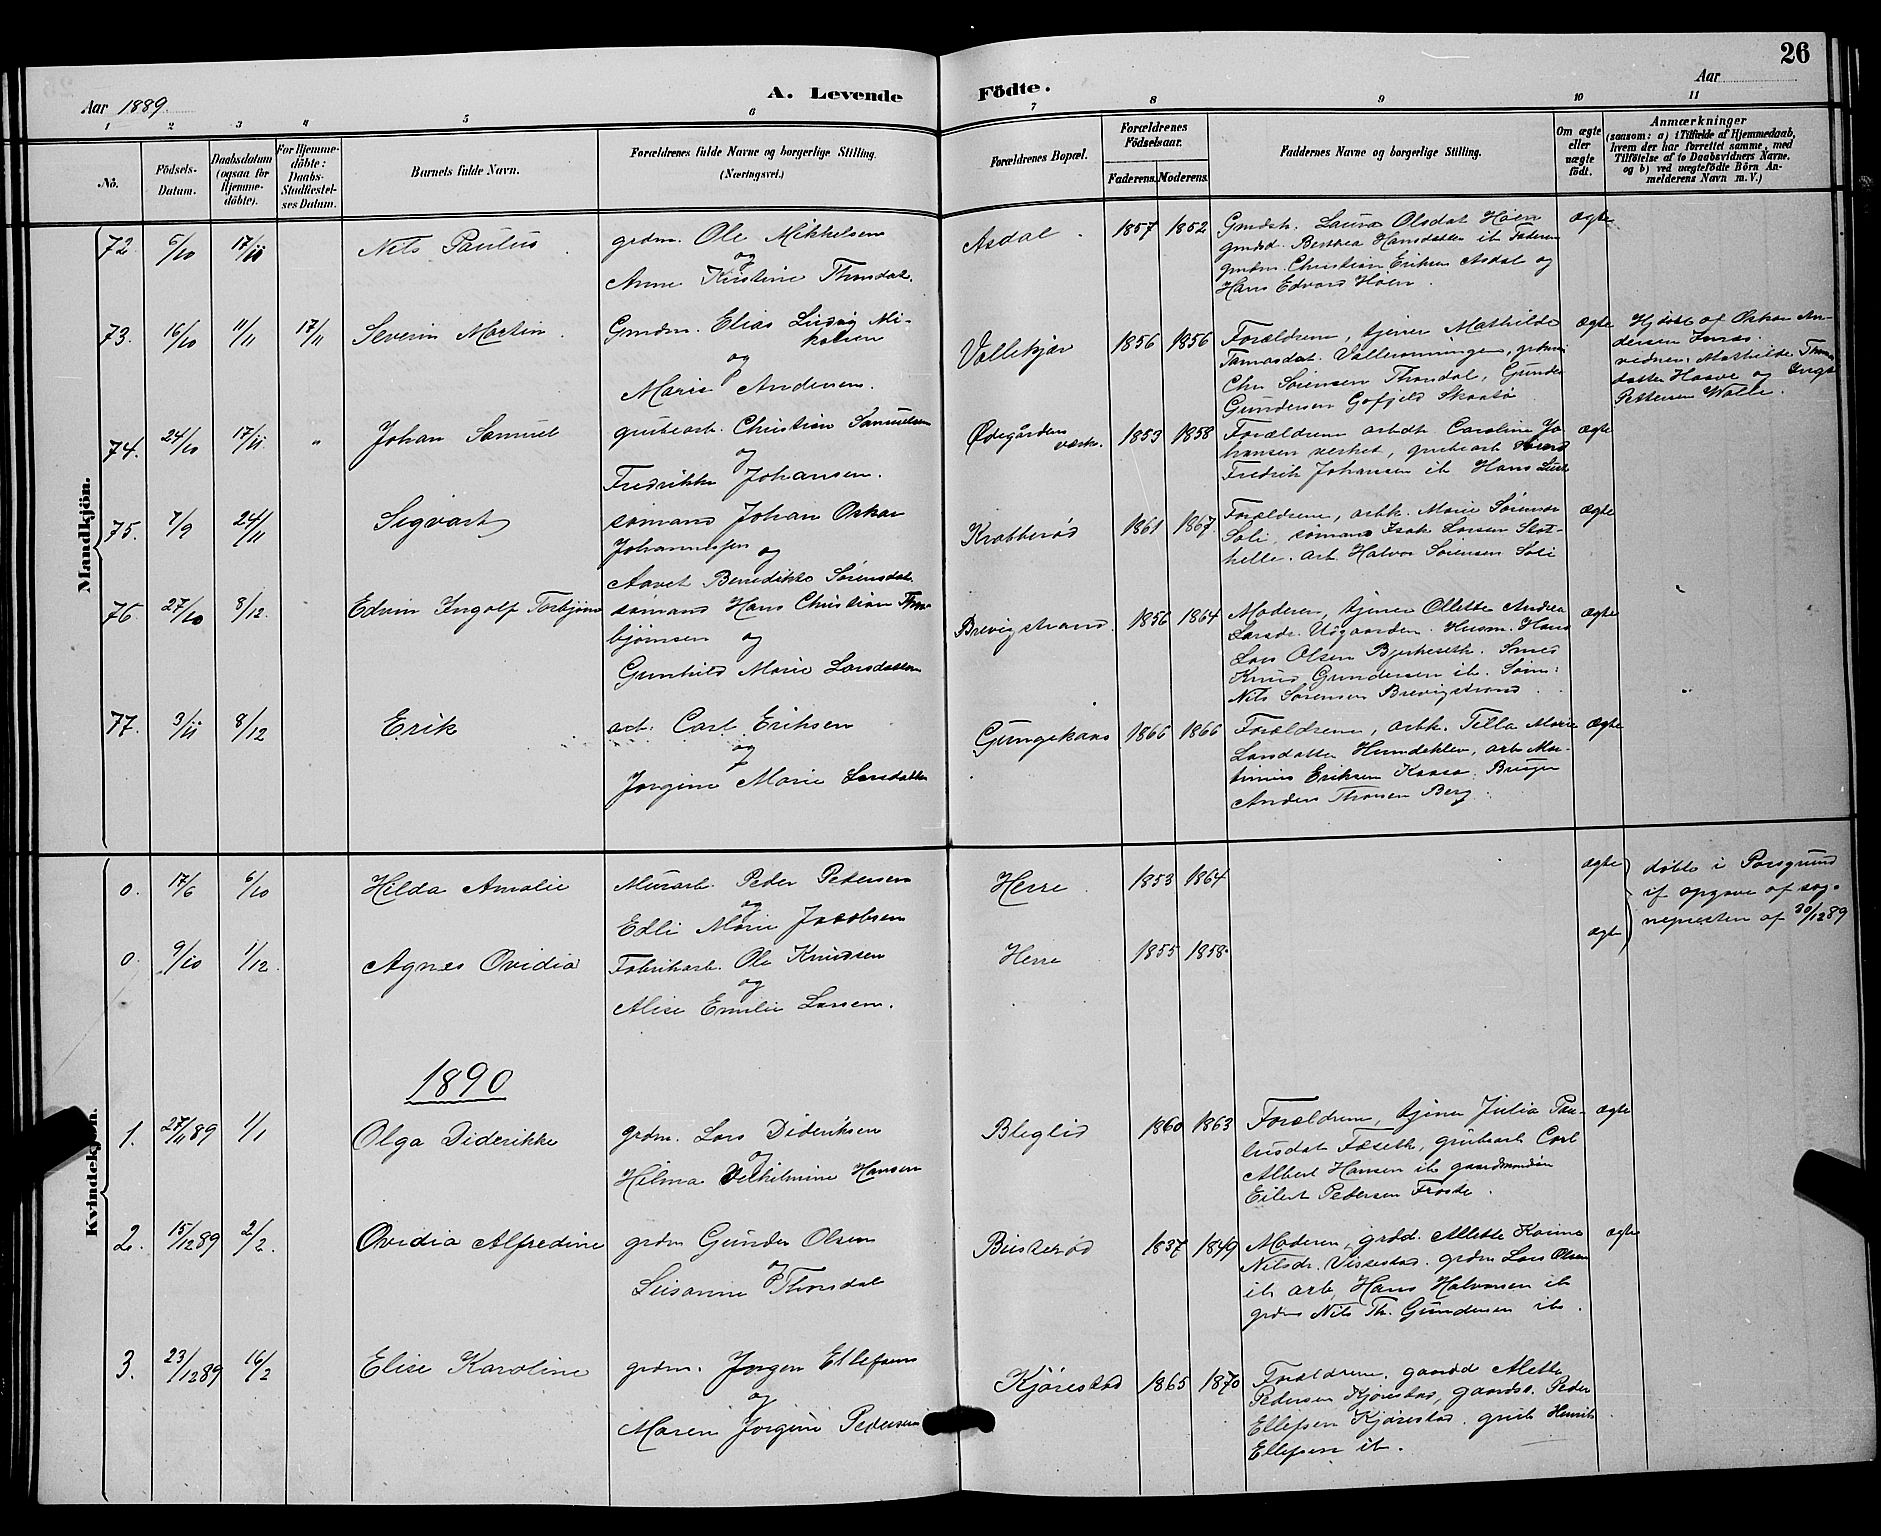 26
Aar 1889.
A. Levende Födte.
Aar
1 2 3 4 5 6 7 8 9 10 11
No.
Födsels-
Datum.
Daabsdatum
(ogsaa for
Hjemme-
döbte).
For Hjemme-
döbte:
Daabs-
Stadfæstel-
ses Datum.
Barnets fulde Navn.
Forældrenes fulde Navne og borgerlige Stilling.
(Næringsvei.)
Forældrenes Bopæl.
Forældrenes
Födselsaar.
Faderens. Moderens.
Faddernes Navne og borgerlige Stilling.
Om ægte
eller
uægte
födt.
Anmærkninger
(saasom: a) i Tilfælde af Hjemmedaab,
hvem der har forrettet samme, med
Tilföielse af to Daabsvidners Navne.
og b) ved uægtefödte Börn An-
melderens Navn m. V.)
Mandkjön.
72. 5/10 17/11 Nils Paulus
grdm. Ole Mikkelsen
og
Anne Kirstine Thorsdat.
Asdal 1857 1852
Gmdsk. Laura Olsdat Høen
gmdsd. Berthea Hansdatter ib Faderen
gmdm. Christian Eriksen Asdal og
Hans Edvard Høen.
Ægte
73. 16/10 11/11 17/11 Severin Martin
Gmdm. Elias Ludvig Mi-
kalsen
og
Marie Andersen.
Vallekjær 1856 1856
Forældrene, tjener Mathilde
Chr Sørensen Thorsdal, Gunder
Gundersen Gofjeld Skaatø
Ægte
Hjdøbt af Oskar An-
dersen
vidner: Mathilde Thom
datter Haave og Inga
Pettersen Walle.
74. 24/10 17/11 " Johan Samuel
grubearb. Christian Samuelsen
og
Fredrikke Johansen.
Ødegårdens
værk. 1853 1858
Forældrene arbdt Caroline Jo-
hansen verket, grubearb
Fredrik Johansen ib Hans
Ægte
75. 7/9 24/11 Sigvart
sømand Johan Oskar
Johannessen og
Aavet Benedikte Sørensdat.
Krabberød 1861 1867.
Forældrene, arbk. Marie Sørensen
Soli, sømand Isak Larsen Stat-
helle. arb. Halvor Sørensen Soli
Ægte
76. 27/10 8/12. Edvin Ingolf Torbjørn
sømand Hans Christian Thor-
bjørnsen og
Gunhild Marie Larsdatter
Brevigstrand. 1856 1864
Moderen, tjener Ollette Andrea
Larsdr. Uögaarden. Husm. Hans
Lars Olsen Bjerkeseth. Smed
Knud Gundersen ib. Søm:
Nils Sørensen Brevigstrand.
Ægte
77. 3/11 8/12 Erik
arb. Carl Eriksen
og
Jorgine Marie Larsdatter
Gungekaas 1866 1866
Forældrene, arbk. Tilla Marie
Larsdatter Hundekleu, arb Mar-
tinius Eriksen Kaasa. Bruger
Anders Thorsen Berg.
Ægte
Kvindekjön.
0. 17/6 6/10 Hilda Amalie
Murarb. Peder Pedersen
og
Edli Marie Jacobsen
Herre 1853 1864
ægte
døbte i Porsgrund
if opgave af sog-
nepresten af 30/12 89
0. 9/10 1/12. Agnes Ovidia
Fabrikarb. Ole Knudsen
og
Alise Emilie Larsen.
Herre 1855 1858.
ægte
1890
1. 27/11 89 1/1 Olga Diderikke
grdm. Lars Dideriksen
og
Hilma Vilhilmine Hansen
Bleglid 1860 1863
Forældrene, tjener Julia Pau-
lusdat Fæseth, grubearb Carl
Albert Hansen ib gaardmandsøn
Eilert Pedersen Froste.
Ægte
2. 15/12 89 2/2. Ovidia Alfredine
grdm Gunder Olsen
og
Susanne Thorsdat
Busterød 1837 1849
Moderen, grdd. Allette Karine
Nilsdr. Vissestad. grdm Lars Olsen
ib arb, Hans Halvorsen ib
grdm Nils Th. Gundersen ib.
ægte
3. 23/12 89 16/2 Elise Karoline
grdm. Jørgen Ellefsen
og
Maren Jorgine Pedersen
Kjørestad 1865 1870
Forældrene, gaardd Alette
Pedersen Kjørestad, gaards. Peder
Ellefsen Kjørestad. grub Henrik
Ellefsen ib.